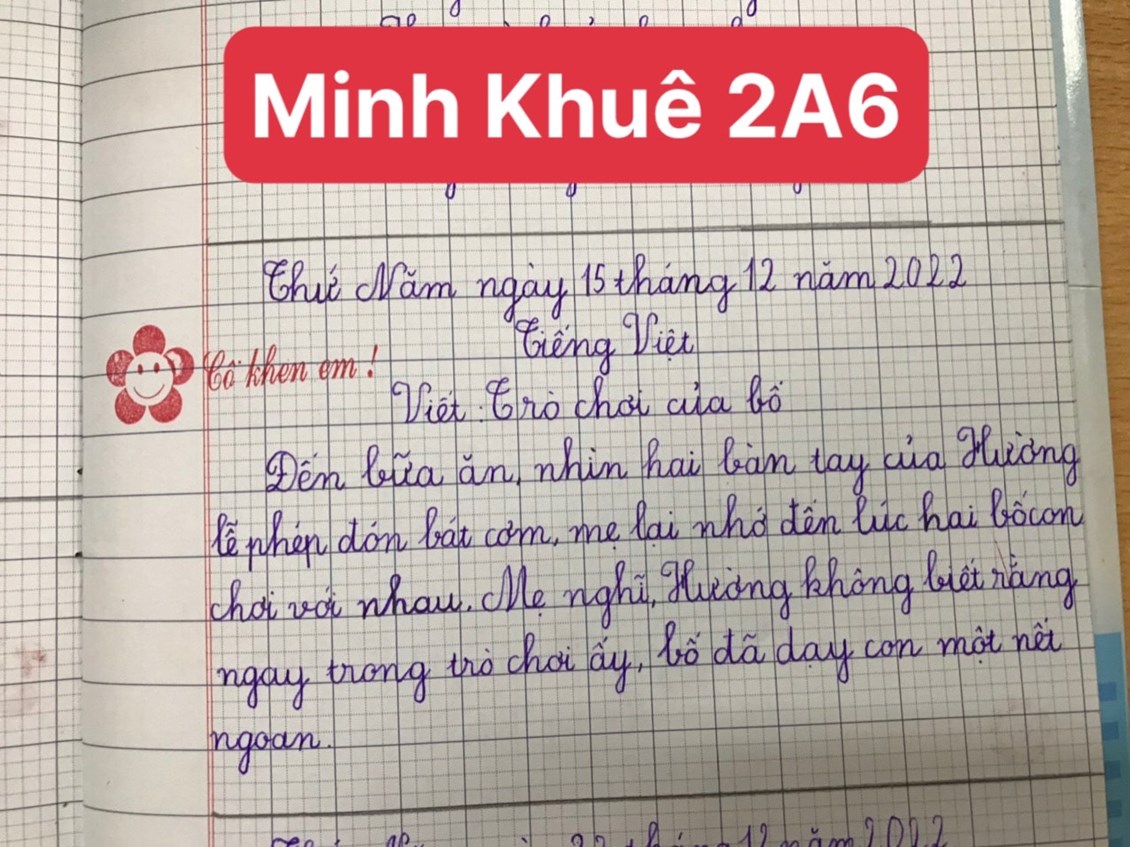 Minh Khuê 2A6
Thứ Năm ngày 15 tháng 12 năm 2022
Tiếng Việt
Cô khen em!
Viết: Trò chơi của bố
Đến bữa ăn, nhìn hai bàn tay của Hường
lễ phép đón bát cơm, mẹ lại nhớ đến lúc hai bố con
chơi với nhau. Mẹ nghĩ, Hường không biết rằng
ngay trong trò chơi ấy, bố đã dạy con một nết
ngoan.
tháng 12 năm 2022